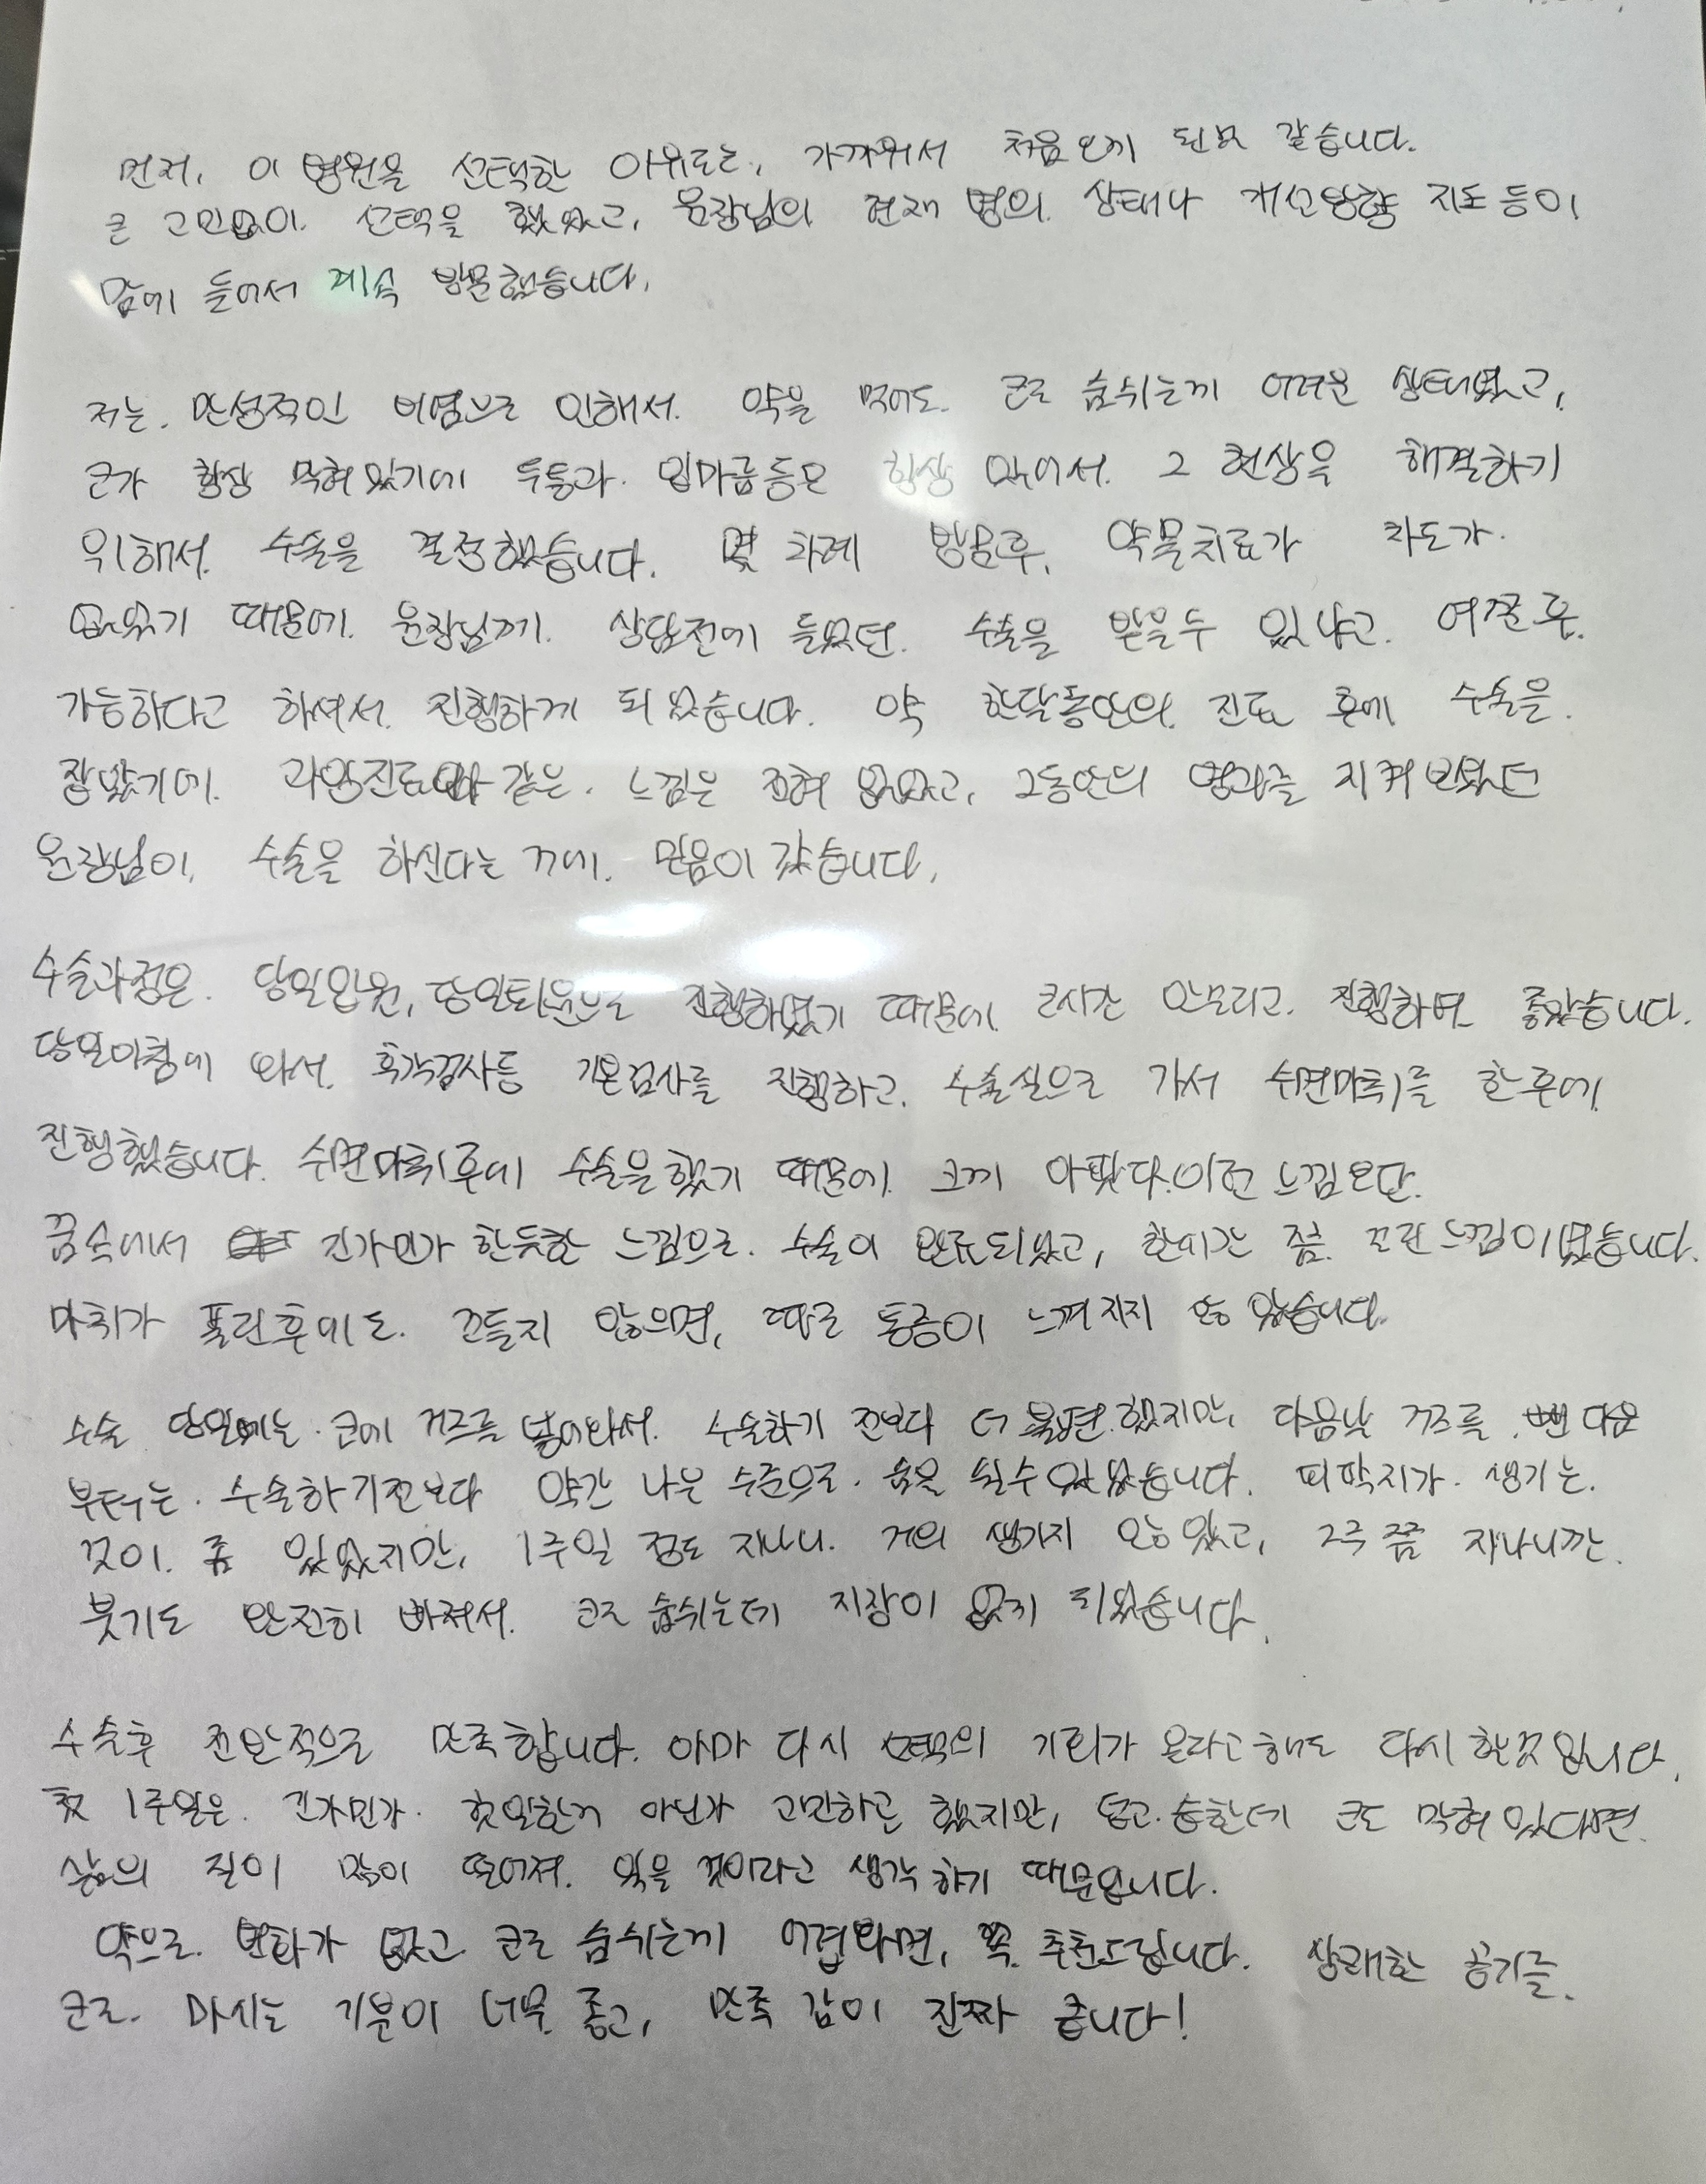 먼저, 이 병원을 선택한 이유로는, 가까워서 처음 오게 된것 같습니다.
큰 고민없이 선택을 했었고, 원장님의 현재 병의 상태나 개선방향 지도 등이
맘에 들어서 계속 방문했습니다.
저는 만성적인 비염으로 인해서 약을 먹어도 코로 숨쉬는게 어려운 상태였고,
코가 항상 막혀있기에 두통과 입마름등은 항상 있어서 그 현상을 해결하기
위해서 수술을 결정했습니다. 몇 차례 방문후, 약물치료가 차도가
없었기 때문에 원장님께 상담전에 들었던 수술을 받을수 있냐고 여쭌 후
가능하다고 하셔서 진행하게 되었습니다. 약 한달동안의 진료 후에 수술을
잡았기에 과잉진료와 같은 느낌은 전혀 없었고, 그동안의 경과를 지켜보셨던
원장님이 수술을 하신다는 거에 믿음이 갔습니다.
수술과정은 당일입원, 당일퇴원으로 진행하였기 때문에 큰시간 안들이고 진행하여 좋았습니다.
당일아침에 와서 후각검사등 기본검사를 진행하고 수술실으로 가서 수면마취를 한후에
진행했습니다. 수면마취후에 수술을 했기 때문에 크게 아팠다 이런 느낌보단
꿈속에서 긴가민가 한듯한 느낌으로 수술이 완료되었고, 한시간 좀 꼬맨느낌이였습니다.
마취가 풀린후에도 건들지 않으면, 따로 통증이 느껴지지 않았습니다.
수술 당일에는 코에 거즈를 넣어놔서 수술하기 전보다 더 불편했지만, 다음날 거즈를 뺀 다음
부터는 수술하기전보다 약간 나은 수준으로 숨을 쉴수있었습니다. 피딱지가 생기는
것이 좀 있었지만, 1주일 정도 지나니 거의 생기지 않았고, 2주 쯤 지나니깐
붓기도 완전히 빠져서 코로 숨쉬는데 지장이 없게 되었습니다.
수술후 전반적으로 만족합니다. 아마 다시 선택의 기회가 온다고 해도 다시 할것입니다.
첫 1주일은 긴가민가 헛일한거 아닌가 고민하곤 했지만, 덥고 습한데 코도 막혀있다면
삶의 질이 많이 떨어져 있을 것이라고 생각하기 때문입니다.
약으로 변화가 없고 코로 숨쉬는게 어렵다면, 꼭 추천드립니다. 상쾌한 공기를
코로 마시는 기분이 너무 좋고, 만족 감이 진짜 큽니다!